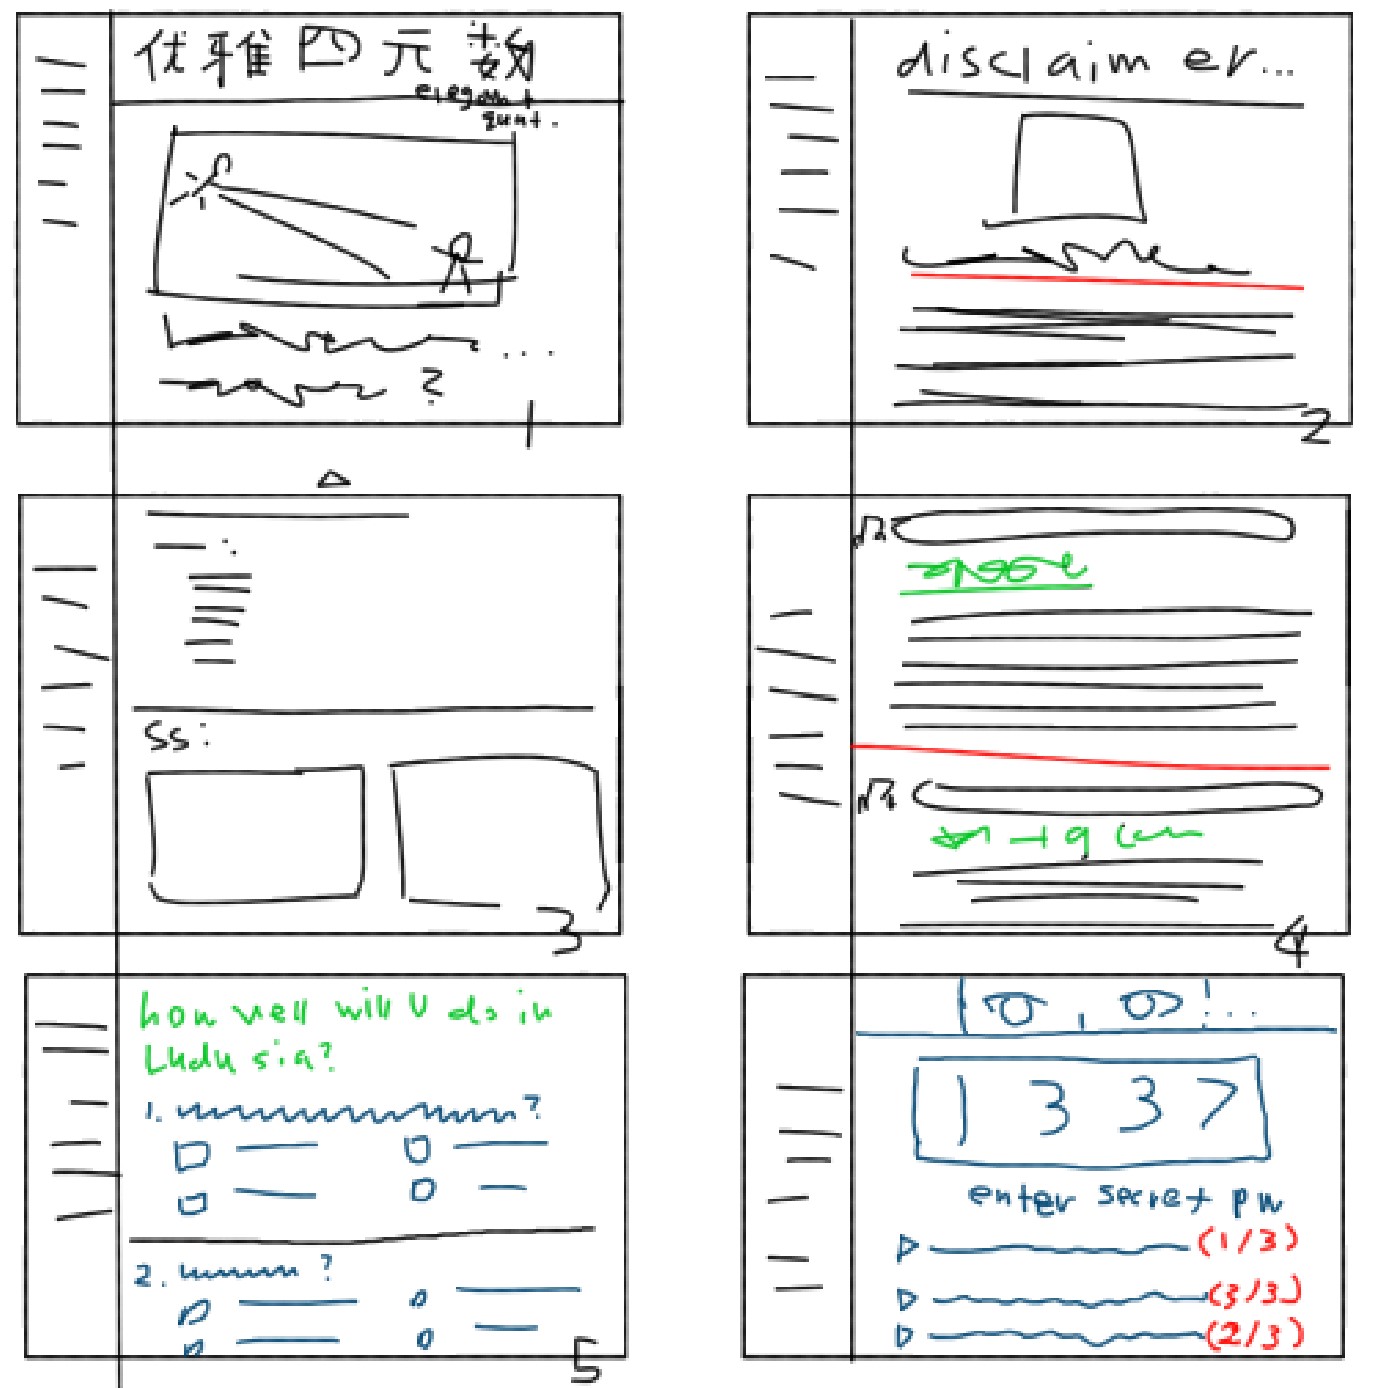 优雅四元数
elegant
quat.
...
?
1
disclaimer...
2
SS:
3
4
how well will U do in
Ludu sia?
1. ?
2. ?
5
1337
enter secret pw
(1/3)
(3/3)
(2/3)